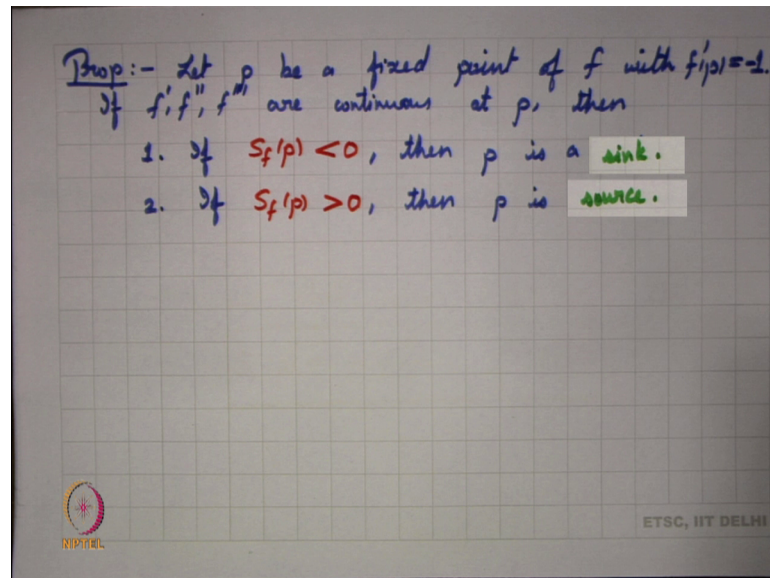 Prop:- Let p be a fixed point of f with f'(p) = -1.
If f', f'', f''' are continuous at p, then
1. If S_f(p) < 0, then p is a sink.
2. If S_f(p) > 0, then p is source.
ETSC, IIT DELHI
NPTEL